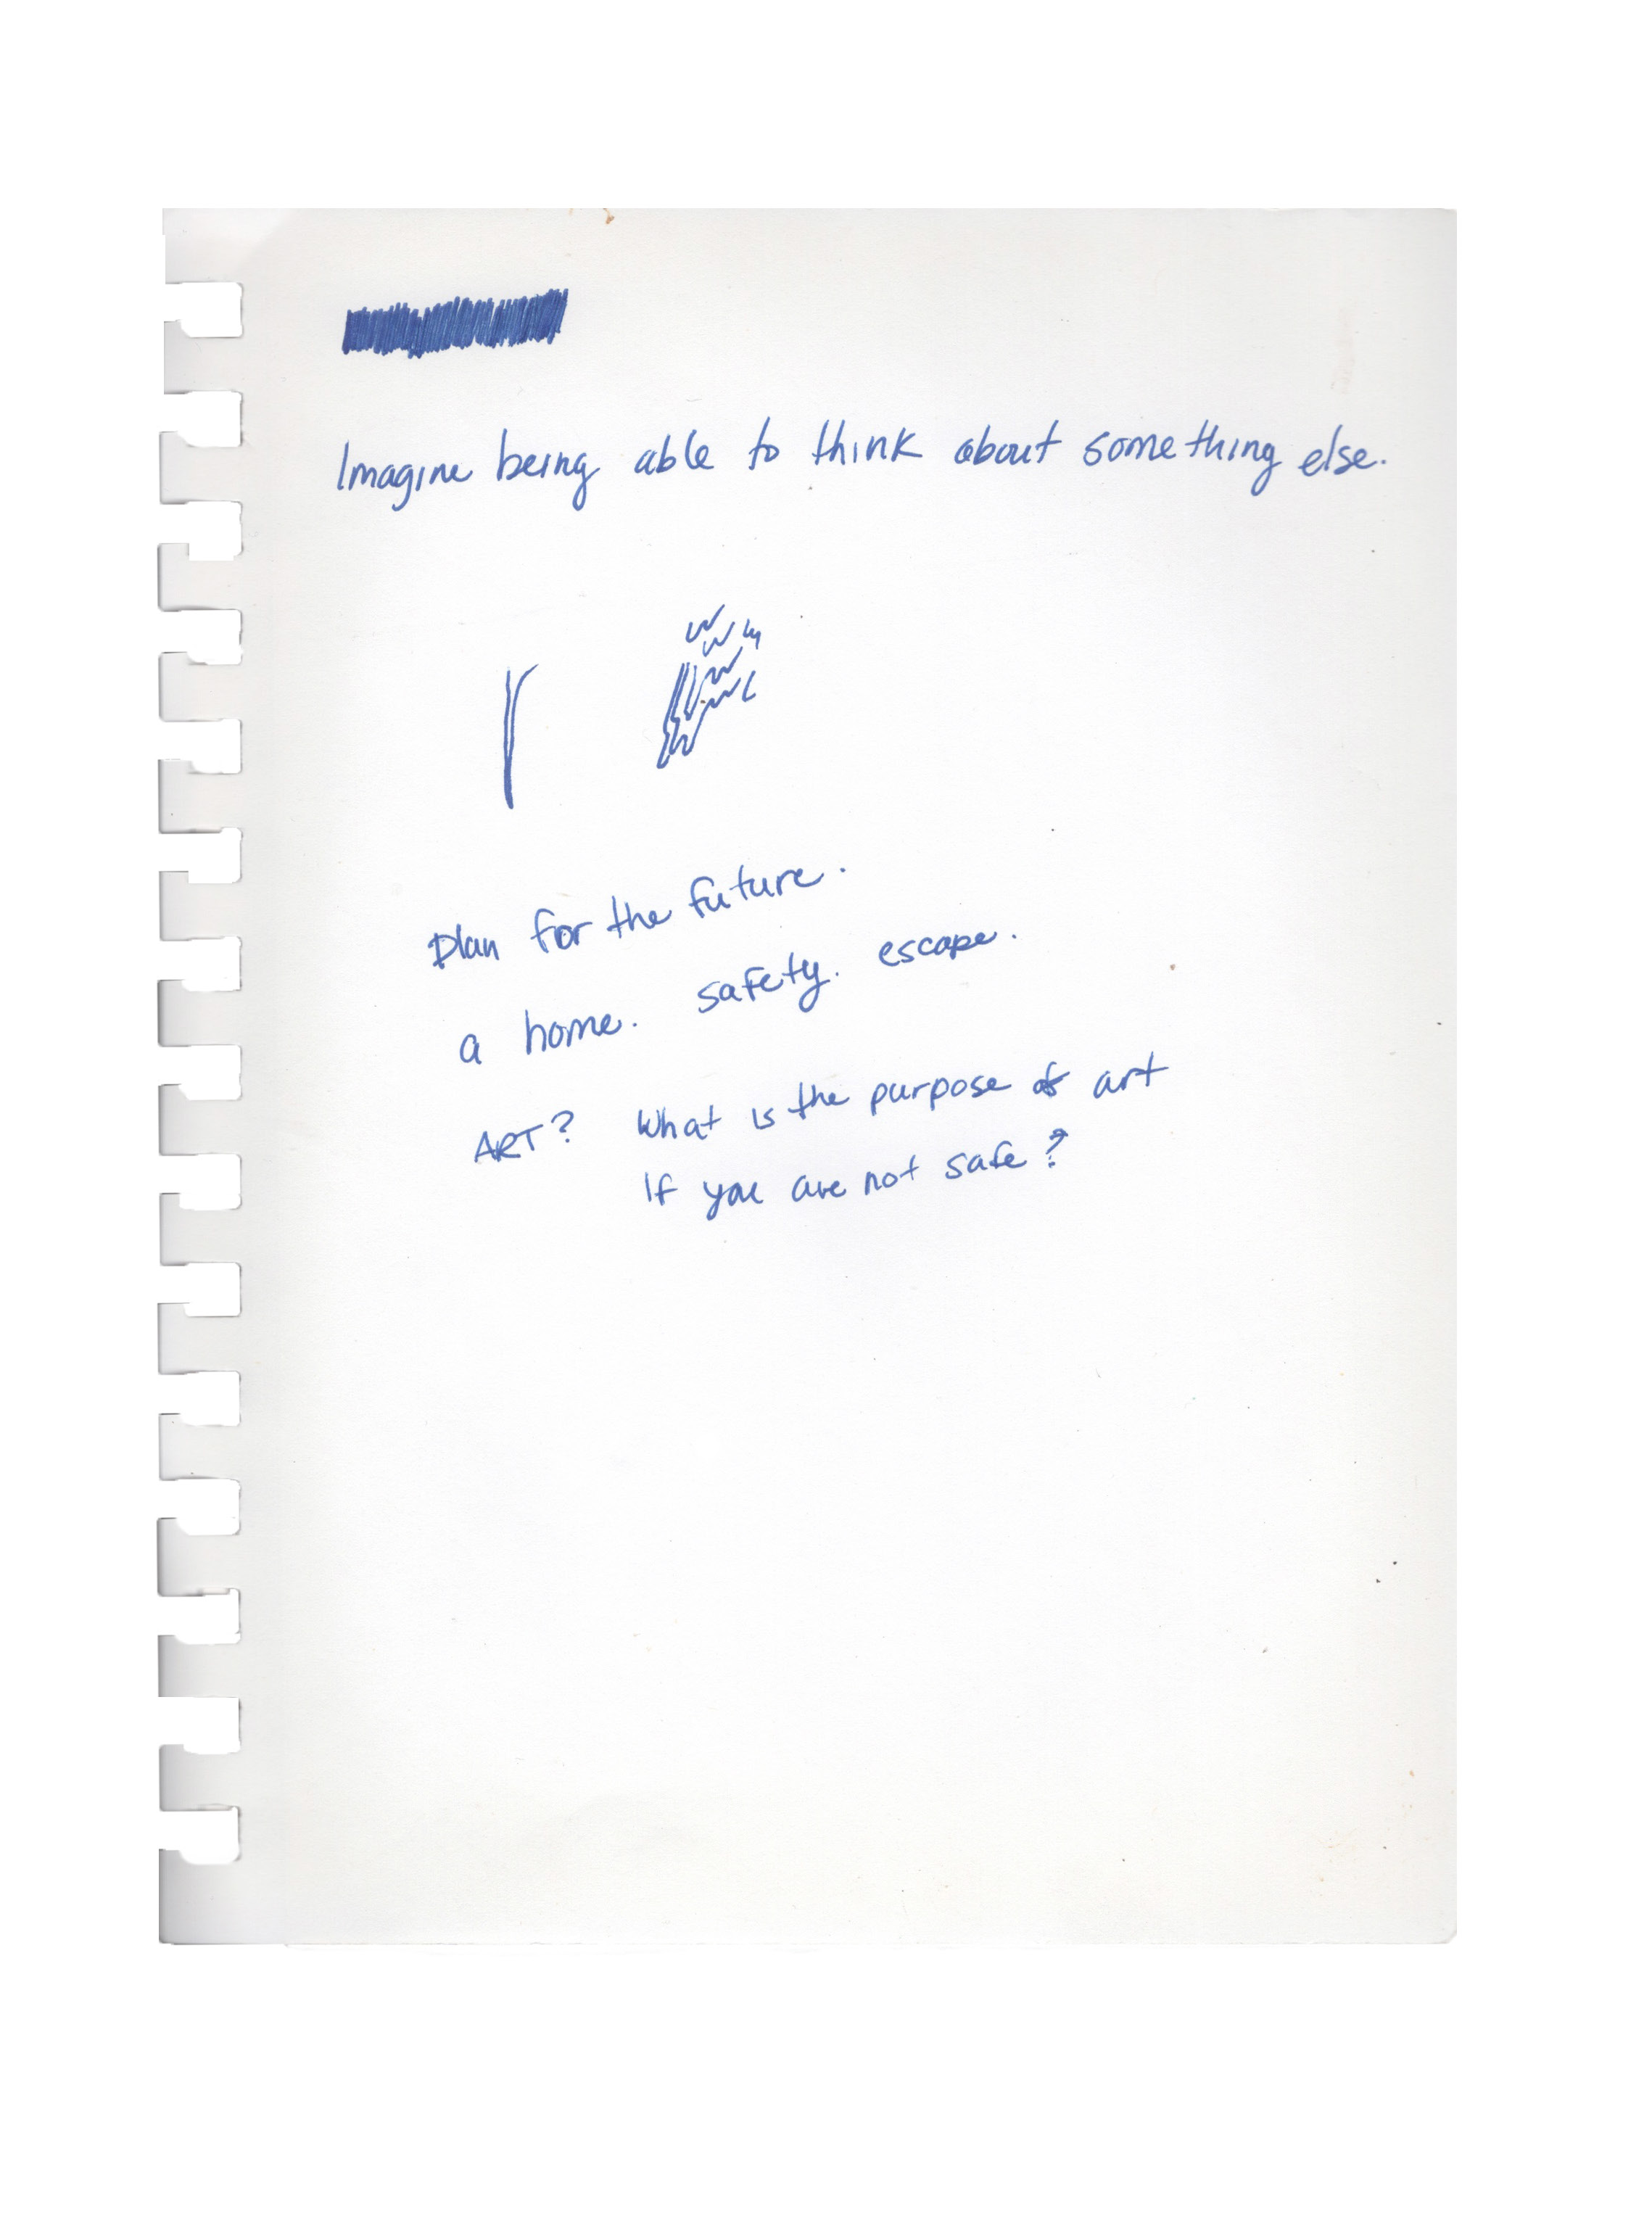 Imagine being able to think about something else.
Plan for the future.
a home. safety. escape.
ART? What is the purpose of art
If you are not safe?